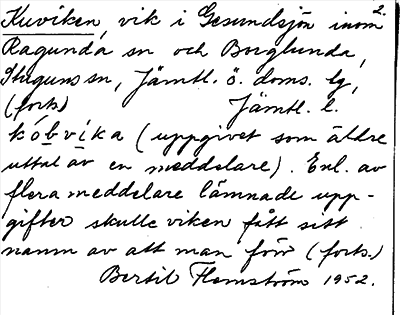 2.
Kuviken, vik i Gesundsjön inom
Ragunda sn och Borglunda,
Stuguns sn, Jämtl. ö. doms. lg,
(forts) Jämtl. l.
kóbvíka (uppgivet som äldre
uttal av en meddelare). Enl. av
flera meddelare lämnade upp-
gifter skulle viken fått sitt
namn av att man förr (forts.)
Bertil Flemström 1952.